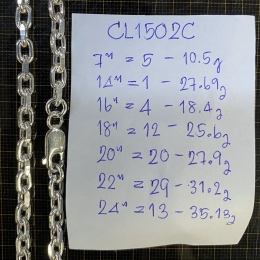 CL1502C
7" = 5 - 10.5g
14" = 1 - 27.69g
16" = 4 - 18.4g
18" = 12 - 25.6g
20" = 20 - 27.9g
22" = 29 - 31.2g
24" = 13 - 35.13g